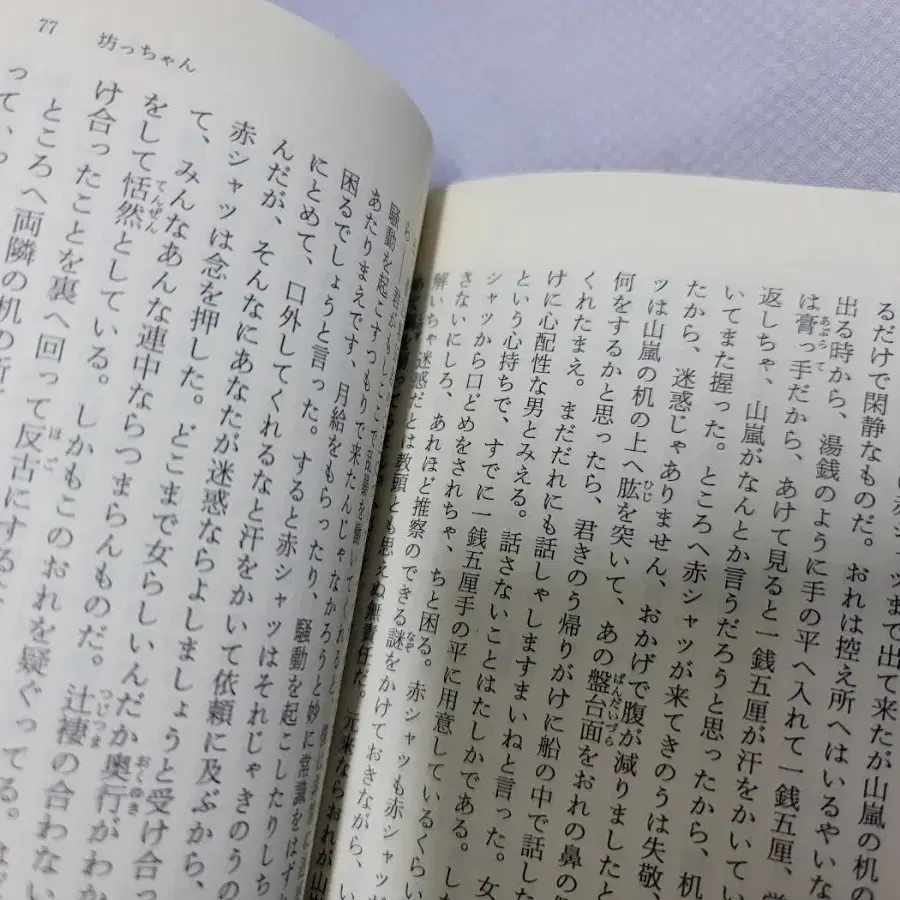 ツまで出て来たが山嵐の机の
るだけで閑静なものだ。おれは控え所へはいるやいな
出る時から、湯銭のように手の平へ入れて一銭五厘、学
は膏っ手だから、あけて見ると一銭五厘が汗をかいてい
あぶら て
返しちゃ、山嵐がなんとか言うだろうと思ったから、机
いてまた握った。ところへ赤シャツが来てきのうは失敬、
たから、迷惑じゃありません、おかげで腹が減りましたと
ツは山嵐の机の上へ肱を突いて、あの盤台面をおれの鼻の
ひじ ばんだいづら
何をするかと思ったら、君きのう帰りがけに船の中で話した
くれたまえ。まだだれにも話しゃしますまいねと言った。女
けに心配性な男とみえる。話さないことはたしかである。し
という心持ちで、すでに一銭五厘手の平に用意しているくらい
シャツから口どめをされちゃ、ちと困る。赤シャツも赤シャツ
さないにしろ、あれほど推察のできる謎をかけておきながら、い
なぞ
解いちゃ迷惑だとは教頭とも思えぬ無責任だ。元来ならおれが山
77 坊っちゃん
騒動を起こすつもりで来たんじゃなかろうと妙に常識をはず
あたりまえです、月給をもらったり、騒動を起こしたりしち
困るでしょうと言った。すると赤シャツはそれじゃきのうの
にとめて、口外してくれるなと汗をかいて依頼に及ぶから、
んだが、そんなにあなたが迷惑ならよしましょうと受け合っ
赤シャツは念を押した。どこまで女らしいんだか奥行がわか
おくゆき
て、みんなあんな連中ならつまらんものだ。辻褄の合わない
つじつま
をして恬然としている。しかもこのおれを疑ぐってる。
てんぜん
け合ったことを裏へ回って反古にするな
ほご
ところへ両隣の机の所